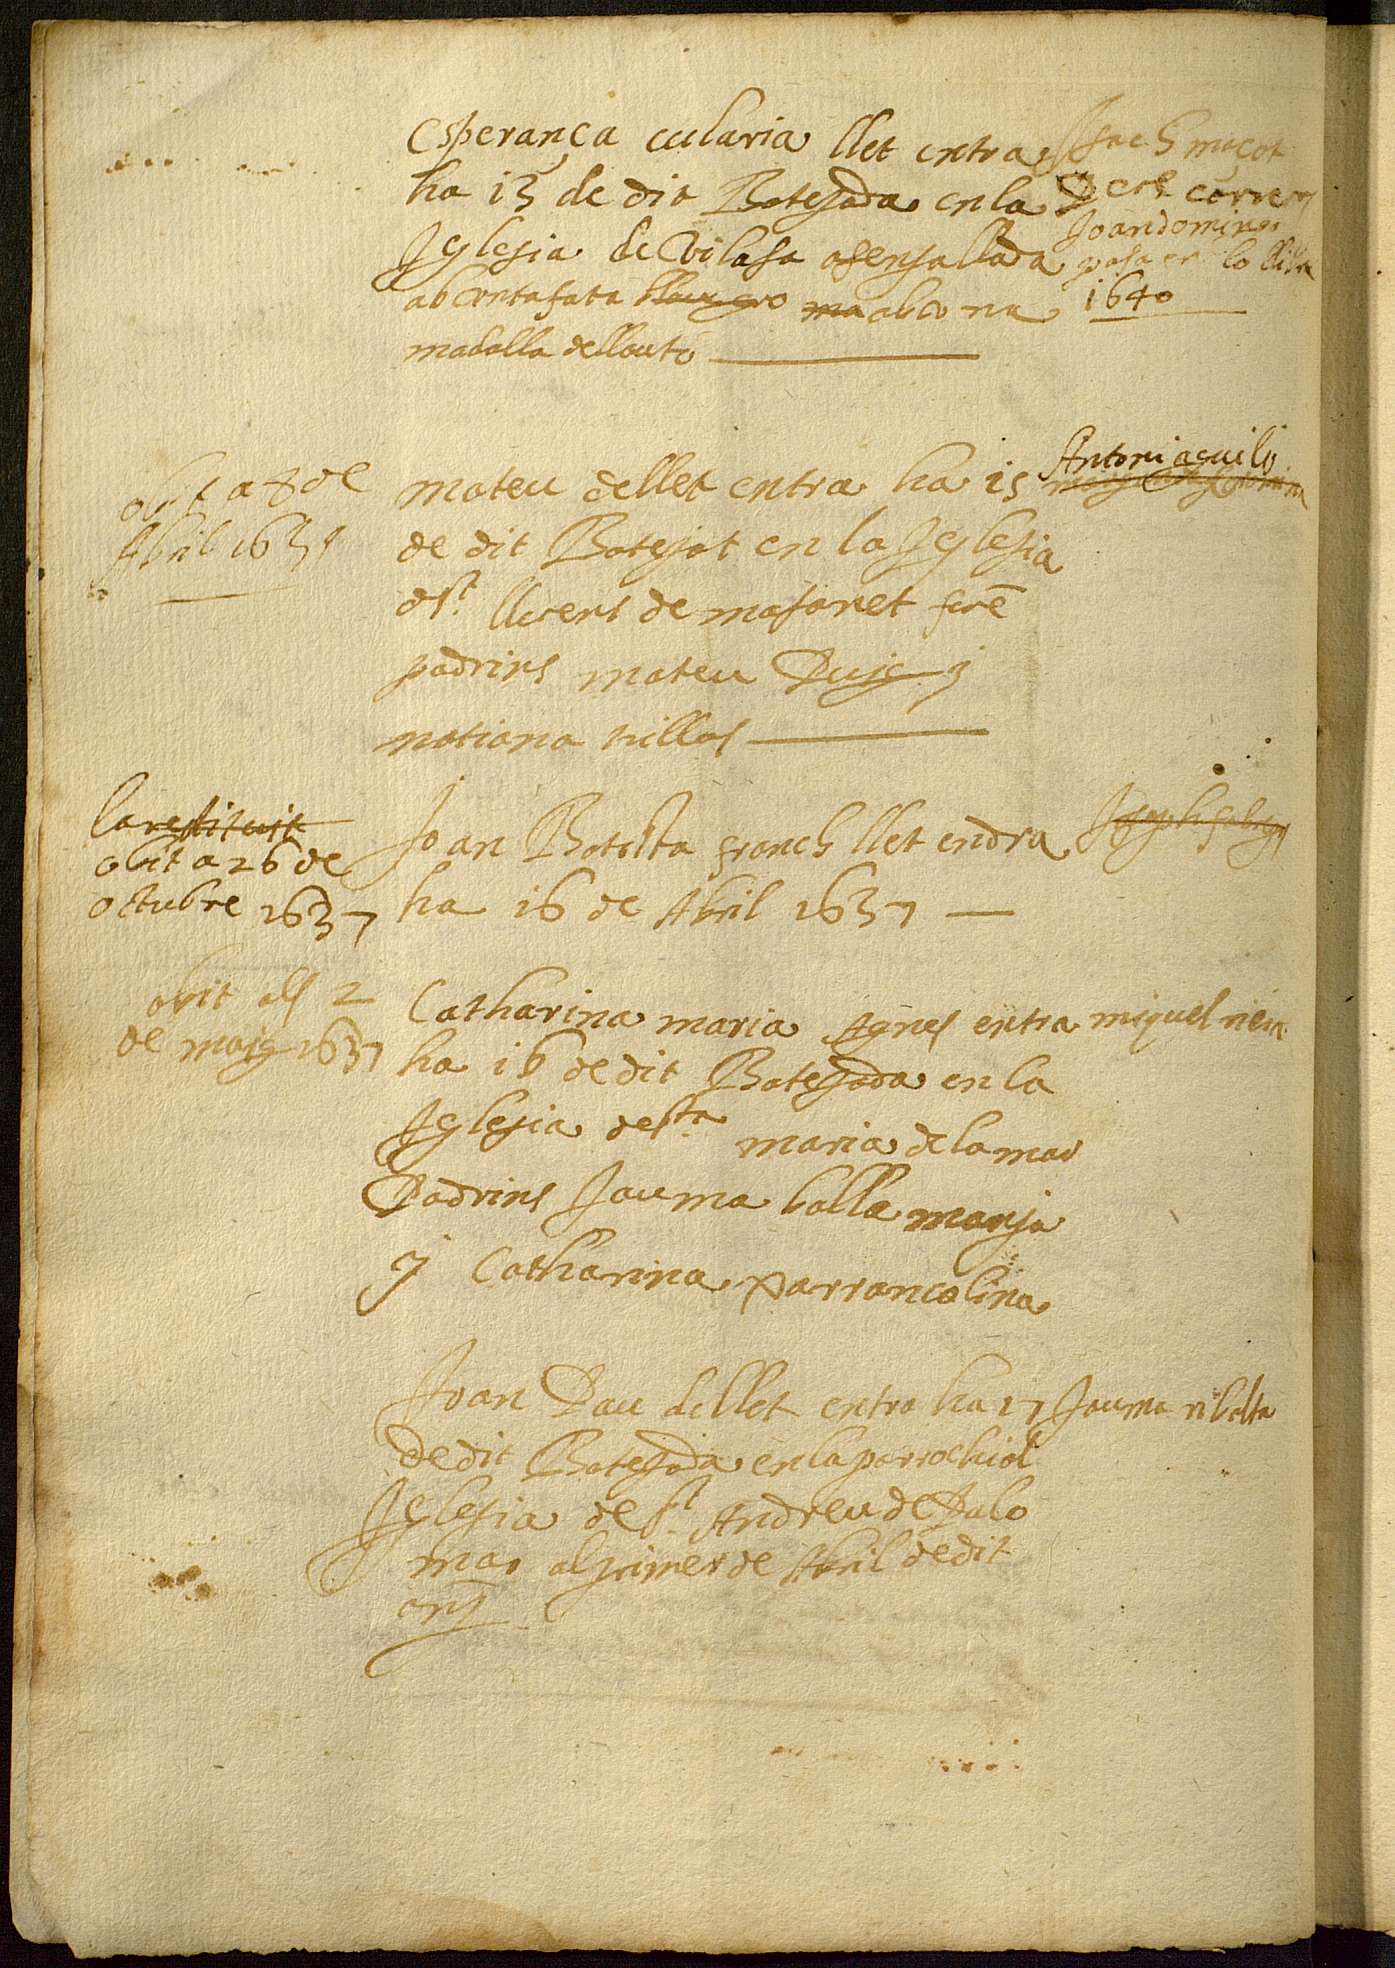 Esperança eularia llet entra
ha 13 de dit Batejada en la
Iglesia de Vilasa asenyallada
ab conta fata blau gro ma ab una
madalla dellautó
Isach mugot
Pere correr
Joan domingo
pasa en lo llibre
1640
obit a 7 de
Abril 1637
mateu dellet entra ha 15
de dit Batejat en la Iglesia
de st. llicens de masanet fore
padrins mateu Puig y
natiana trillas
Antoni aguilo
la restituit
obit a 26 de
octubre 1637
Joan Batista franch llet endra
ha 16 de Abril 1637
Joseph
obit als 2
de maig 1637
Catharina maria Agnes entra
ha 16 de dit Batejada en la
Iglesia de sta maria de la mar
Padrins Jauma balla monja
y Catharina parrancolina
miquel
Joan Pau dellet entra ha 17
de dit Batejada en la parrochial
Iglesia de st. Andreu de Palo
mar al primer de Abril de dit
any
Jauma ribalta